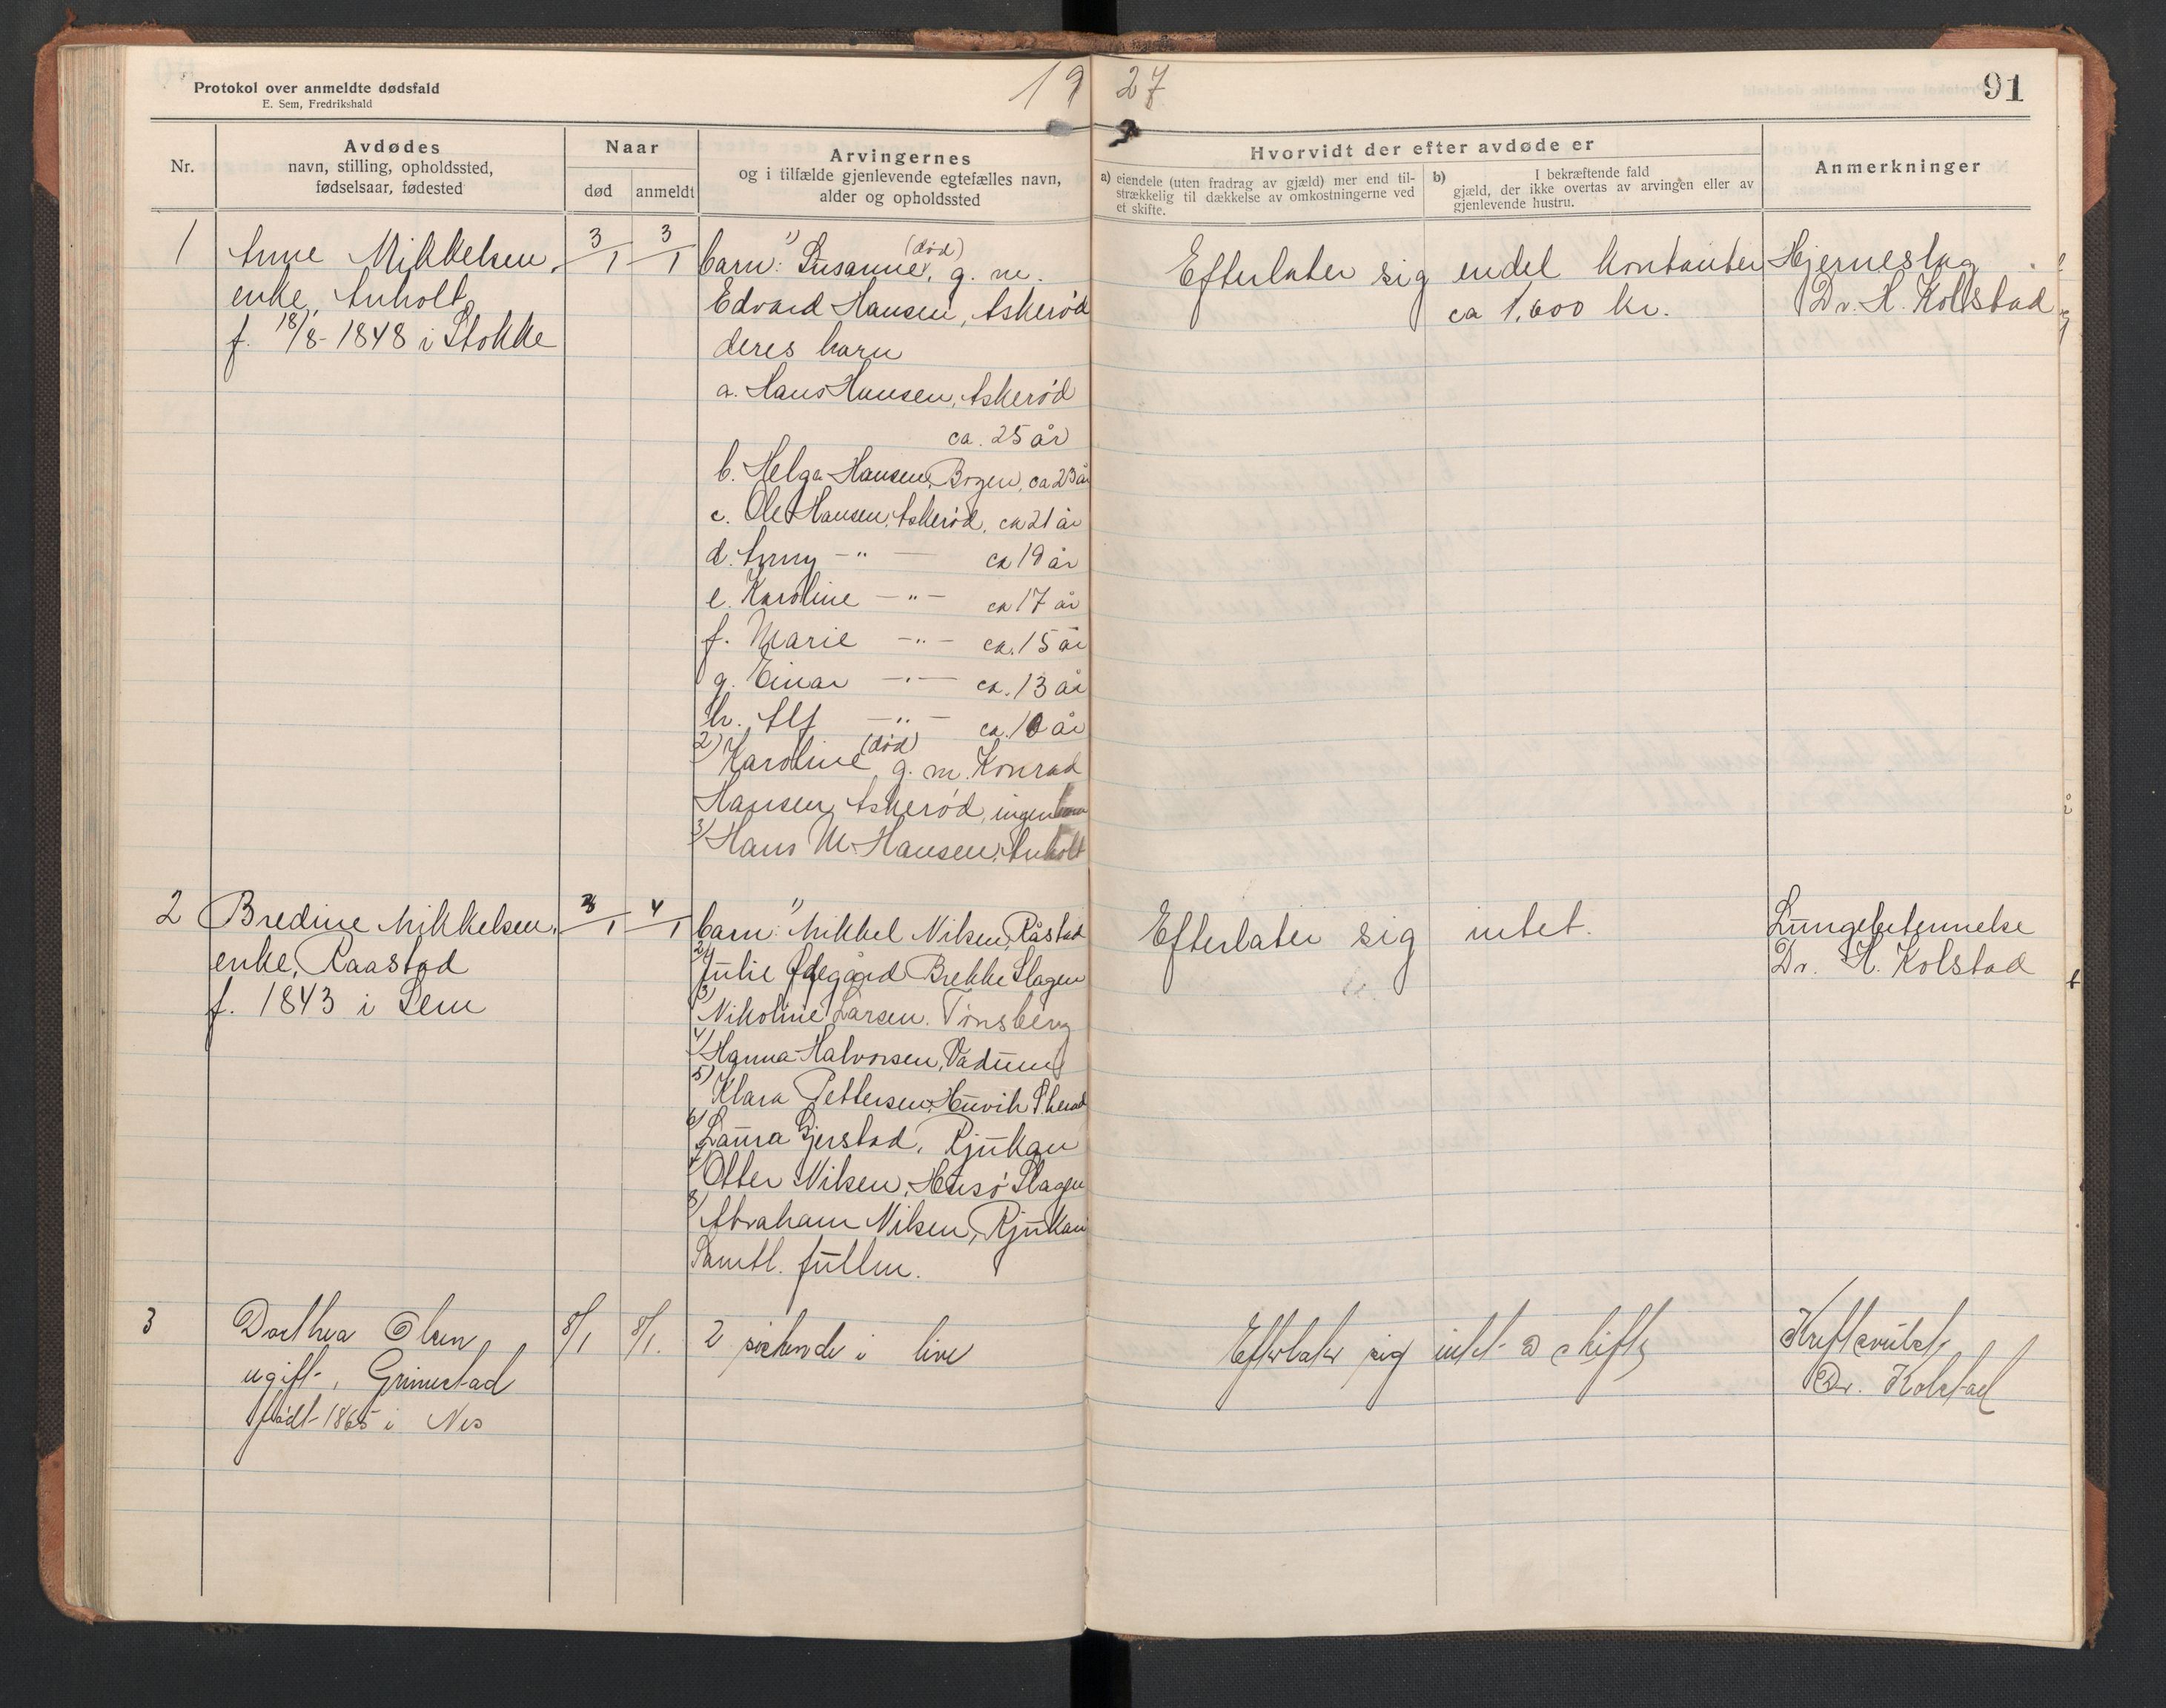 Protokol over anmeldte dødsfald
E. Sem, Fredrikshald
1927
91
Nr.
Avdødes
navn, stilling, opholdssted,
fødselsaar, fødested
Naar
død
anmeldt
Arvingernes
og i tilfælde gjenlevende egtefælles navn,
alder og opholdssted
Hvorvidt der efter avdøde er
a) eiendele (uten fradrag av gjæld) mer end til-
strækkelig til dækkelse av omkostningerne ved
et skifte.
b) I bekræftende fald
gjæld, der ikke overtas av arvingen eller av
gjenlevende hustru.
Anmerkninger
1
Anne Mikkelsen,
enke, Anholt,
f. 18/8-1848 i Stokke
3/1
3/1
barn: 1) Susanne (død), g. m.
Edvard Hansen, Askerød
deres barn
a. Hans Hansen, Askerød
ca. 25 år
b. Helga Hansen, Bogen, ca 23 år
c. Ole Hansen, Askerød, ca 21 år
d. Anny -"- ca 19 år
e. Karoline -"- ca 17 år
f. Marie -"- ca. 15 år
g. Einar -"- ca. 13 år
h. Alf -"- ca. 10 år
2) Karoline (død) g. m. Konrad
Hansen, Askerød, ingen barn
3) Hans M. Hansen, Anholt
Efterlater sig endel kontanter
ca 1.600 kr.
Hjerneslag
Dr. H. Kolstad
2
Bredine Mikkelsen,
enke, Raastad
f. 1843 i Sem
3/1
4/1
barn: 1) Mikkel Nilsen, Råstad
2) Julie Ødegård Brekke Slagen
3) Nikoline Larsen. Tønsberg
4) Hanna Halvorsen, Vadum
5) Klara Pettersen, Huvik
6) Laura Gjerstad, Rjukan
7) Otter Nilsen, Slagen
8) Abraham Nilsen, Rjukan
Samtl. fullm.
Efterlater sig intet.
Lungebetennelse
Dr. H. Kolstad
3
Dorthea Olsen
ugift, Grimestad
født 1865 i Nes
8/1
8/1.
2 søskende i live
Efterlater sig intet å skifte
Kreftsvulst,
Dr. Kolstad